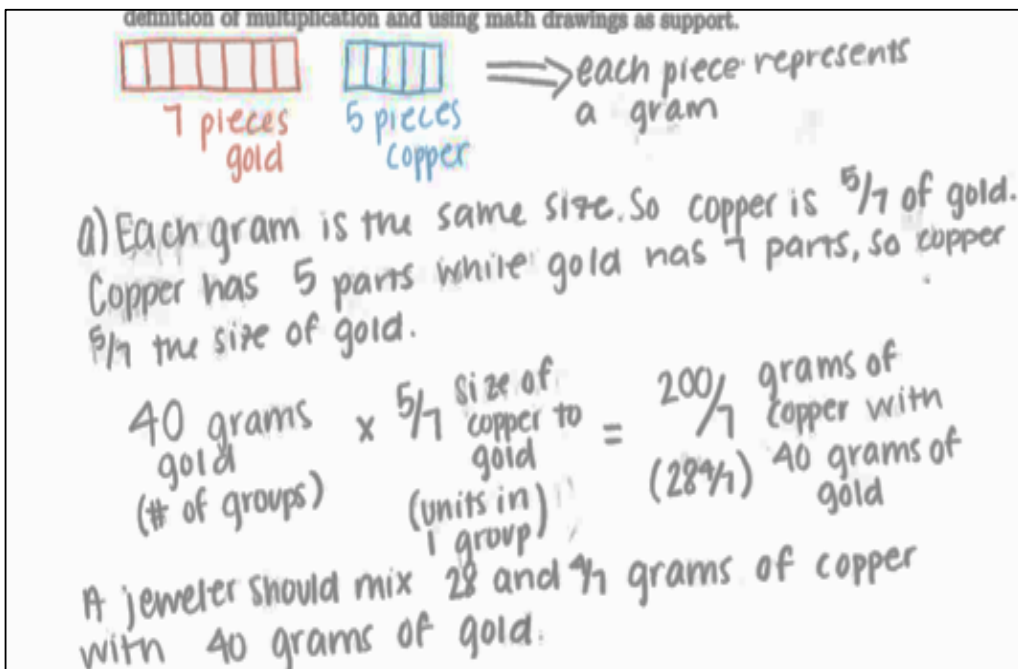 definition of multiplication and using math drawings as support.
7 pieces gold
5 pieces copper
each piece represents a gram
a) Each gram is the same size. So copper is 5/7 of gold.
Copper has 5 parts while gold has 7 parts, so copper
5/7 the size of gold.
40 grams gold (# of groups) x 5/7 size of copper to gold (units in 1 group) = 200/7 (28 4/7) grams of copper with 40 grams of gold
A jeweler should mix 28 and 4/7 grams of copper
with 40 grams of gold.